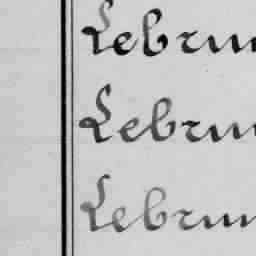 Lebrun
Lebrun
Lebrun